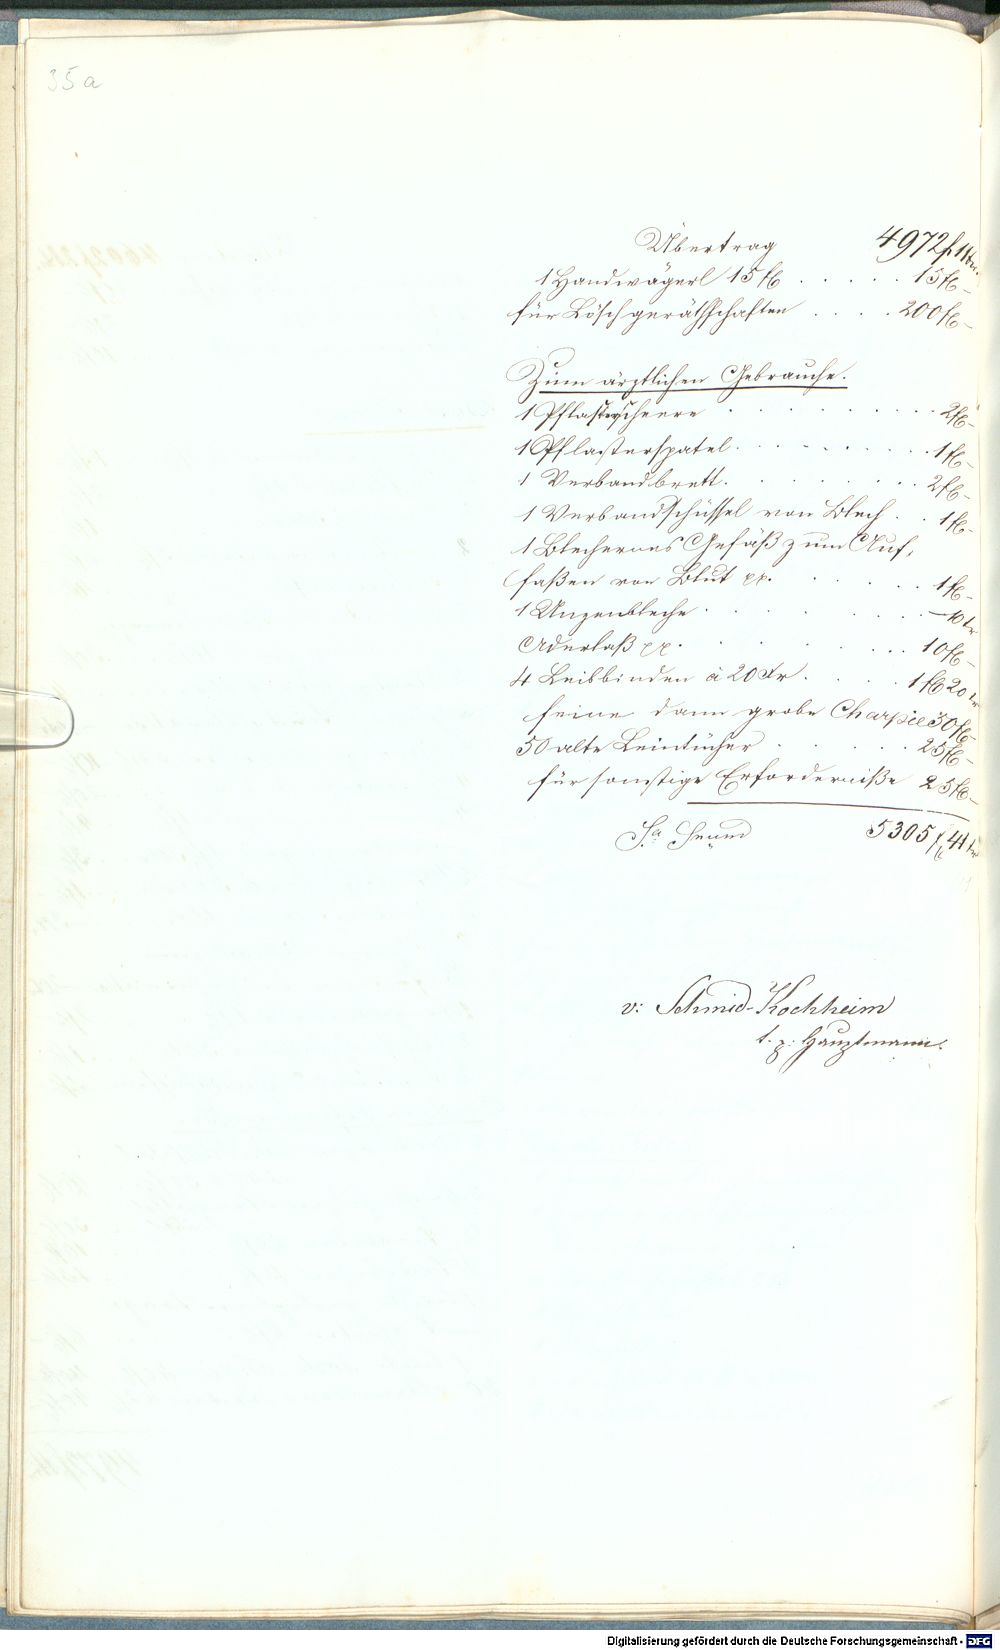 35a
Übertrag 4972 fl 11 kr.
1 Handwägerl 15 fl . . . . . 15 fl –
für Löschgeräthschaften . . . . 200 fl –
Zum ärztlichen Gebrauche.
1 Pflasterscheere . . . . . . . . . . 2 fl –
1 Pflasterspatel . . . . . . . . . 1 fl –
1 Verbandbrett . . . . . . . . 2 fl –
1 Verbandschüssel von Blech . . 1 fl –
1 Blechernes Gefäß zum Auf-
faßen von Blut pp. . . . . . . 1 fl –
1 Unzenbleche . . . . . . . – 10 kr
Aderlaß pp. . . . . . . 10 fl –
4 Leibbinden à 20 Kr . . . . 1 fl 20 kr
feine dann grobe Charpie 50 fl –
50 alte Leintücher . . . . . . 25 fl –
für sonstige Erforderniße 25 fl –
Sa 5305 fl 41 kr
v: Schmid-Kochheim
t. p: Hauptmann.
Digitalisierung gefördert durch die Deutsche Forschungsgemeinschaft - DFG